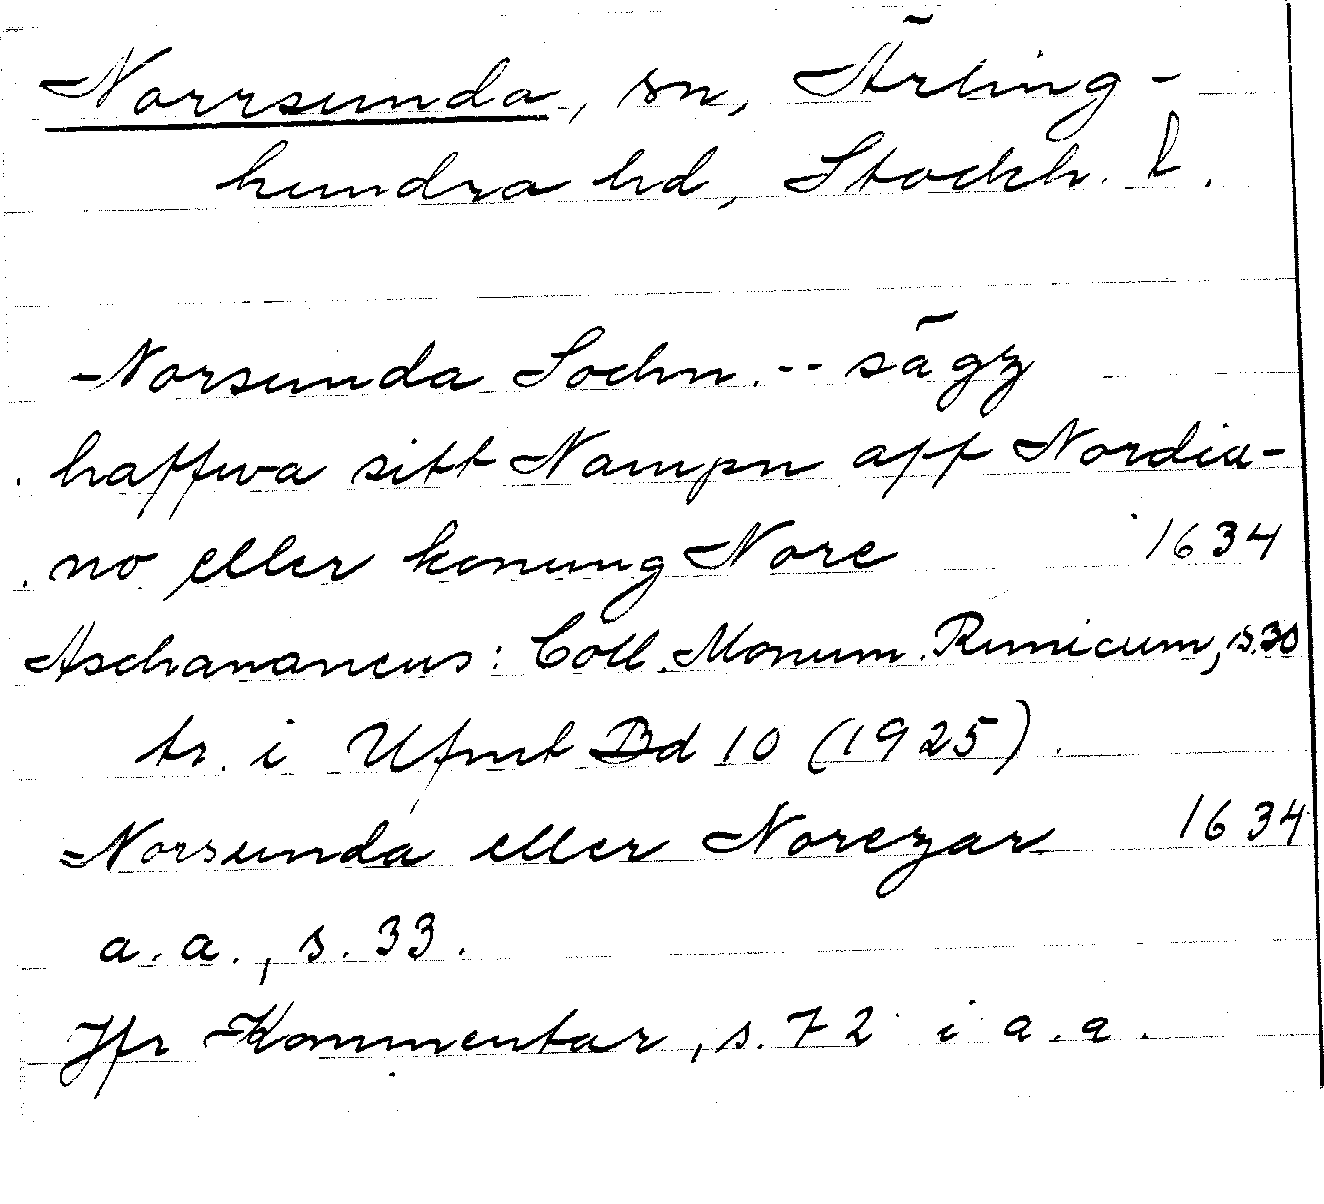 Norrsunda, sn, Ärling-
hundra hd, Stockh. l.
Norsunda Sochn. -- sägz
haffwa sitt Nampn aff Nordia-
no eller konung Nore 1634
Aschananeus: Coll. Monum. Runicum, s. 30
tr. i Ufmt Bd 10 (1925).
Norsunda eller Norezar 1634
a. a., s. 33.
Jfr Kommentar, s. 72 i a. a.